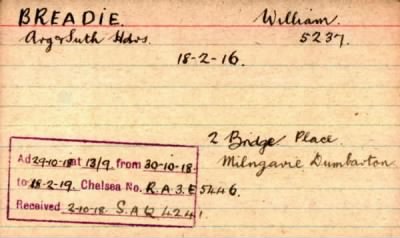 BREADIE. William.
Arg & Suth Hdrs. 5237.
18-2-16.
2 Bridge Place
Milngavie Dumbarton
Ad 29-10-18 at 13/9. from 30-10-18
to 18-2-19. Chelsea No. R.A.3.E 5446.
Received 2-10-18. S.A.Q 4241.